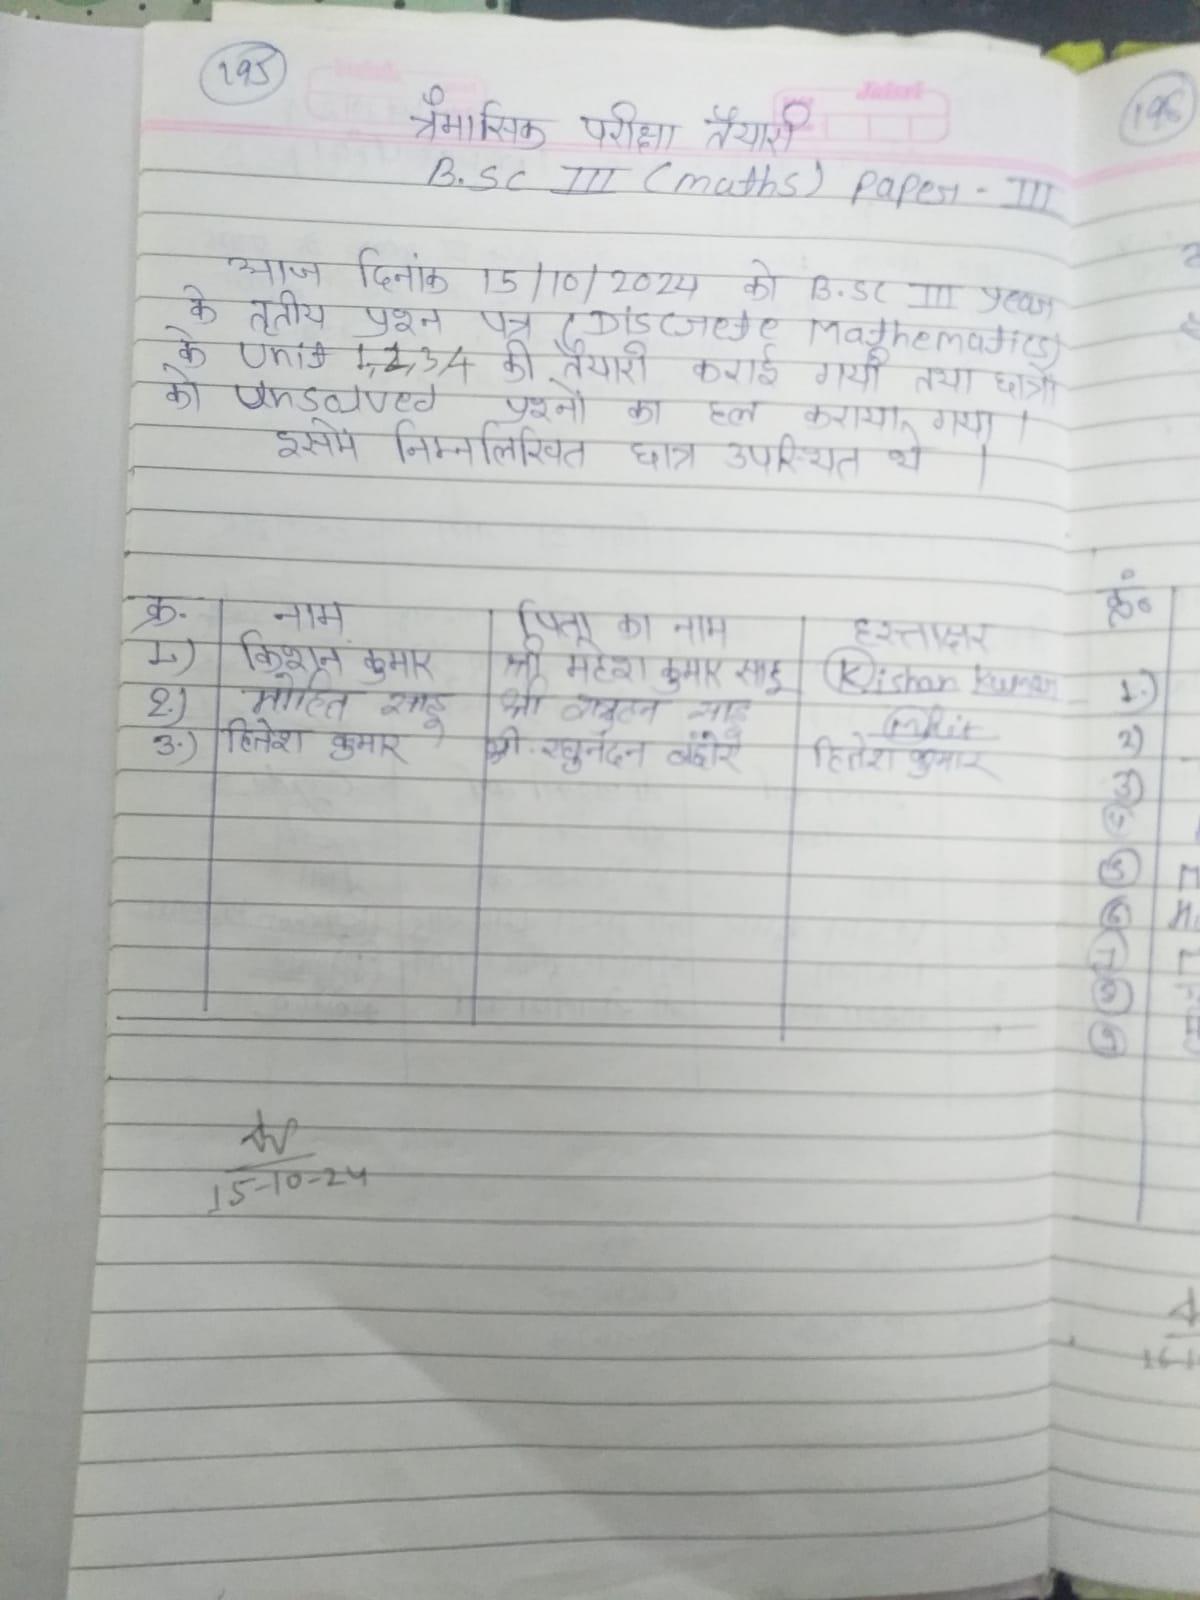 195
त्रैमासिक परीक्षा तैयारी
B.Sc III (maths) paper - III
आज दिनांक 15/10/2024 को B.Sc III year
के तृतीय प्रश्न पत्र (Discrete Mathematics)
के Unit 1,2,3,4 की तैयारी कराई गयी तथा छात्रो
को Unsolved प्रश्नो का हल कराया गया।
इसमे निम्नलिखित छात्र उपस्थित थे।
क्र. नाम पिता का नाम हस्ताक्षर
1.) किशन कुमार श्री महेश कुमार साहू Kishan Kumar
2.) मोहित साहू श्री साहू Mohit
3.) हितेश कुमार श्री रघुनंदन हितेश कुमार
15-10-24
196
क्रं.
1.)
2)
3)
4)
5)
6)
7)
8)
9)